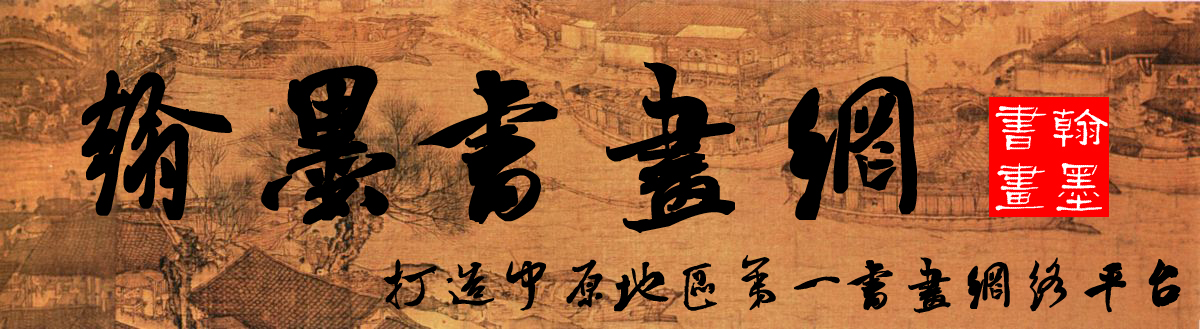 翰墨書畫網
翰墨
書畫
打造中原地區第一書畫網絡平台